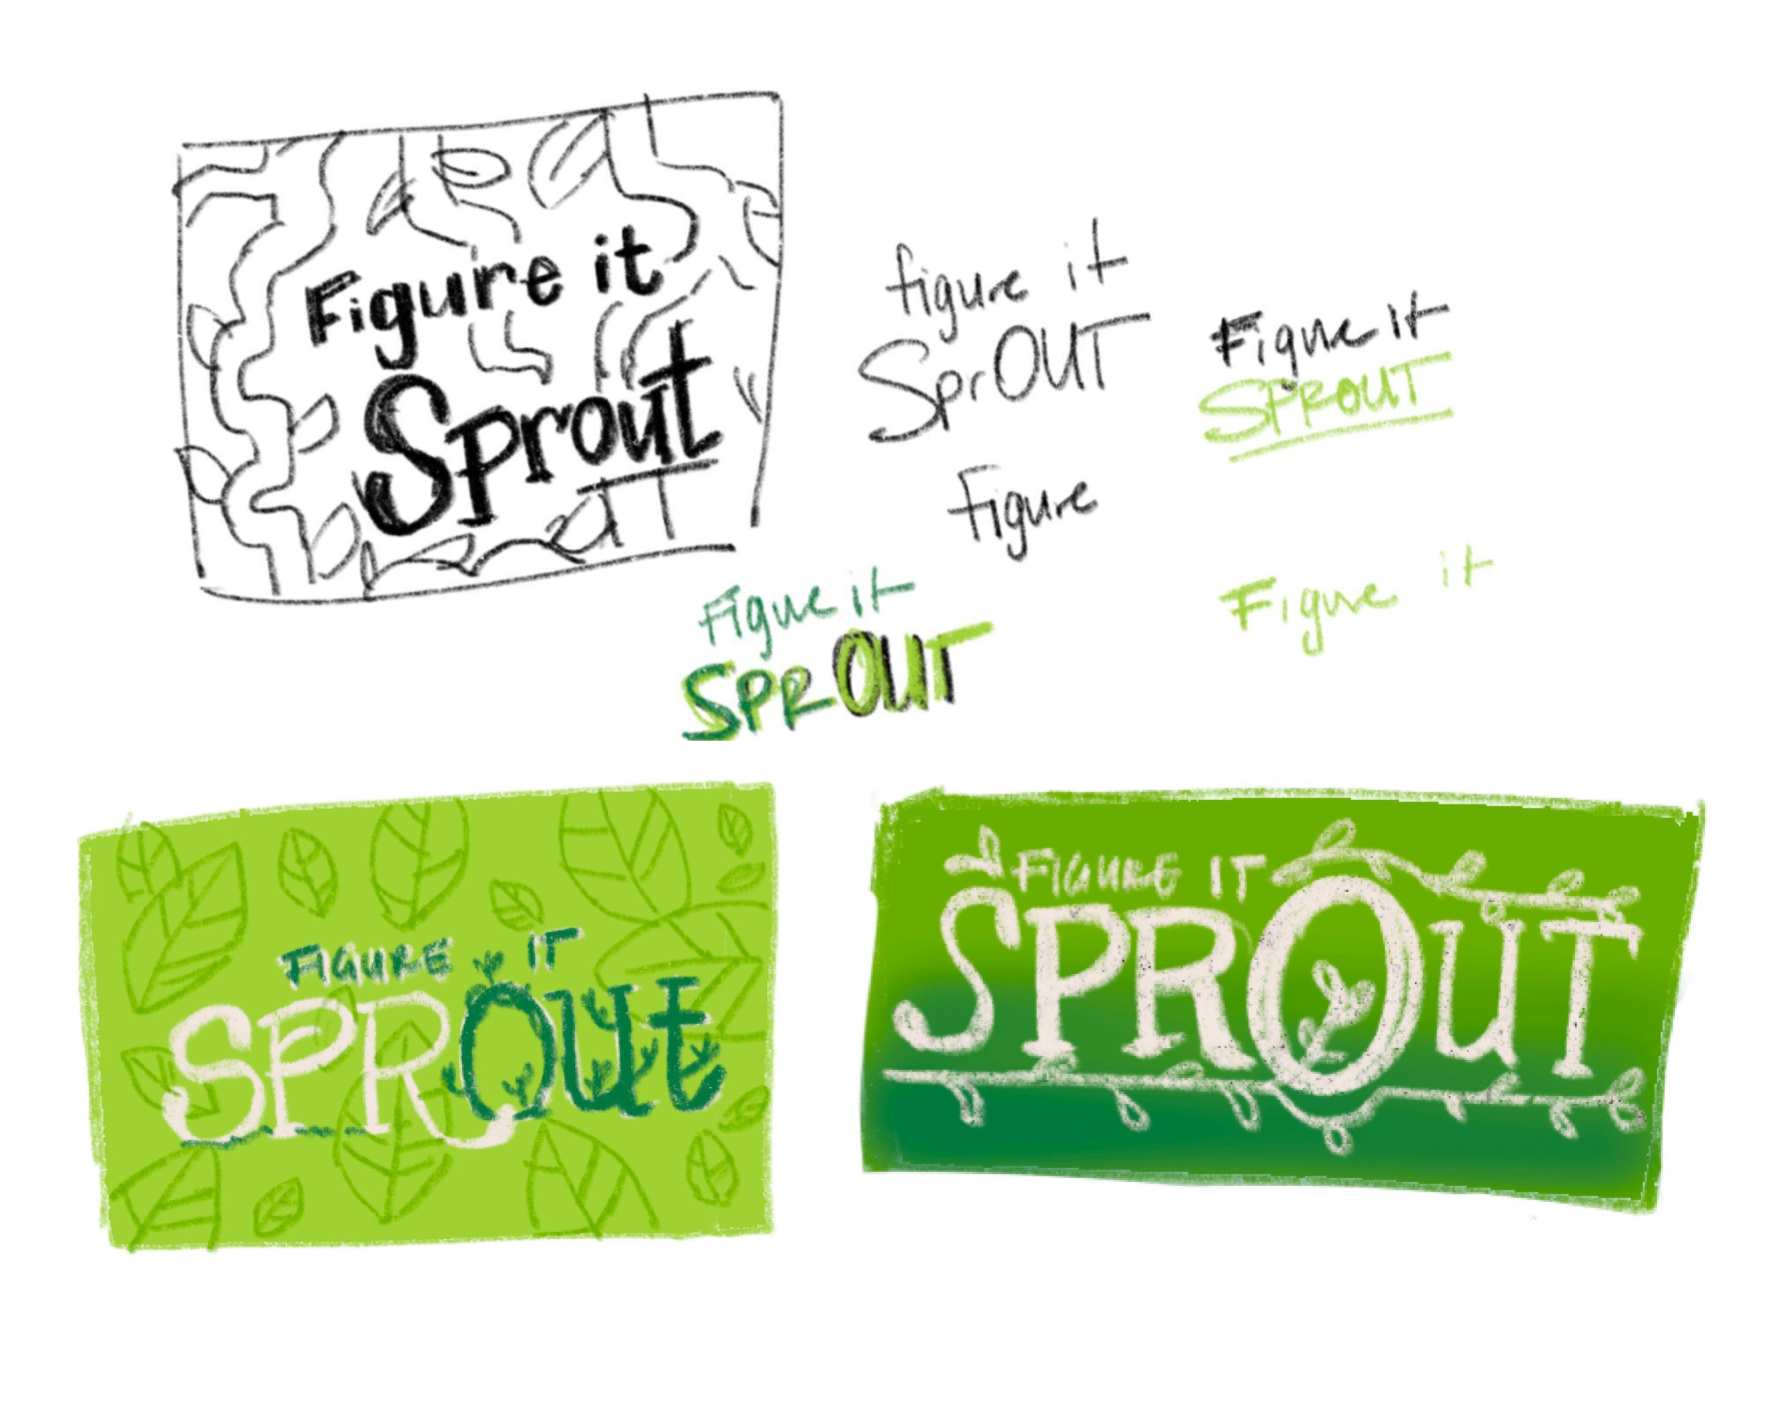 Figure it
Sprout
figure it
SprOUT
Figure it
SPROUT
Figure
Figure it
SPROUT
Figure it
FIGURE IT
SPROUt
FIGURE IT
SPROUT